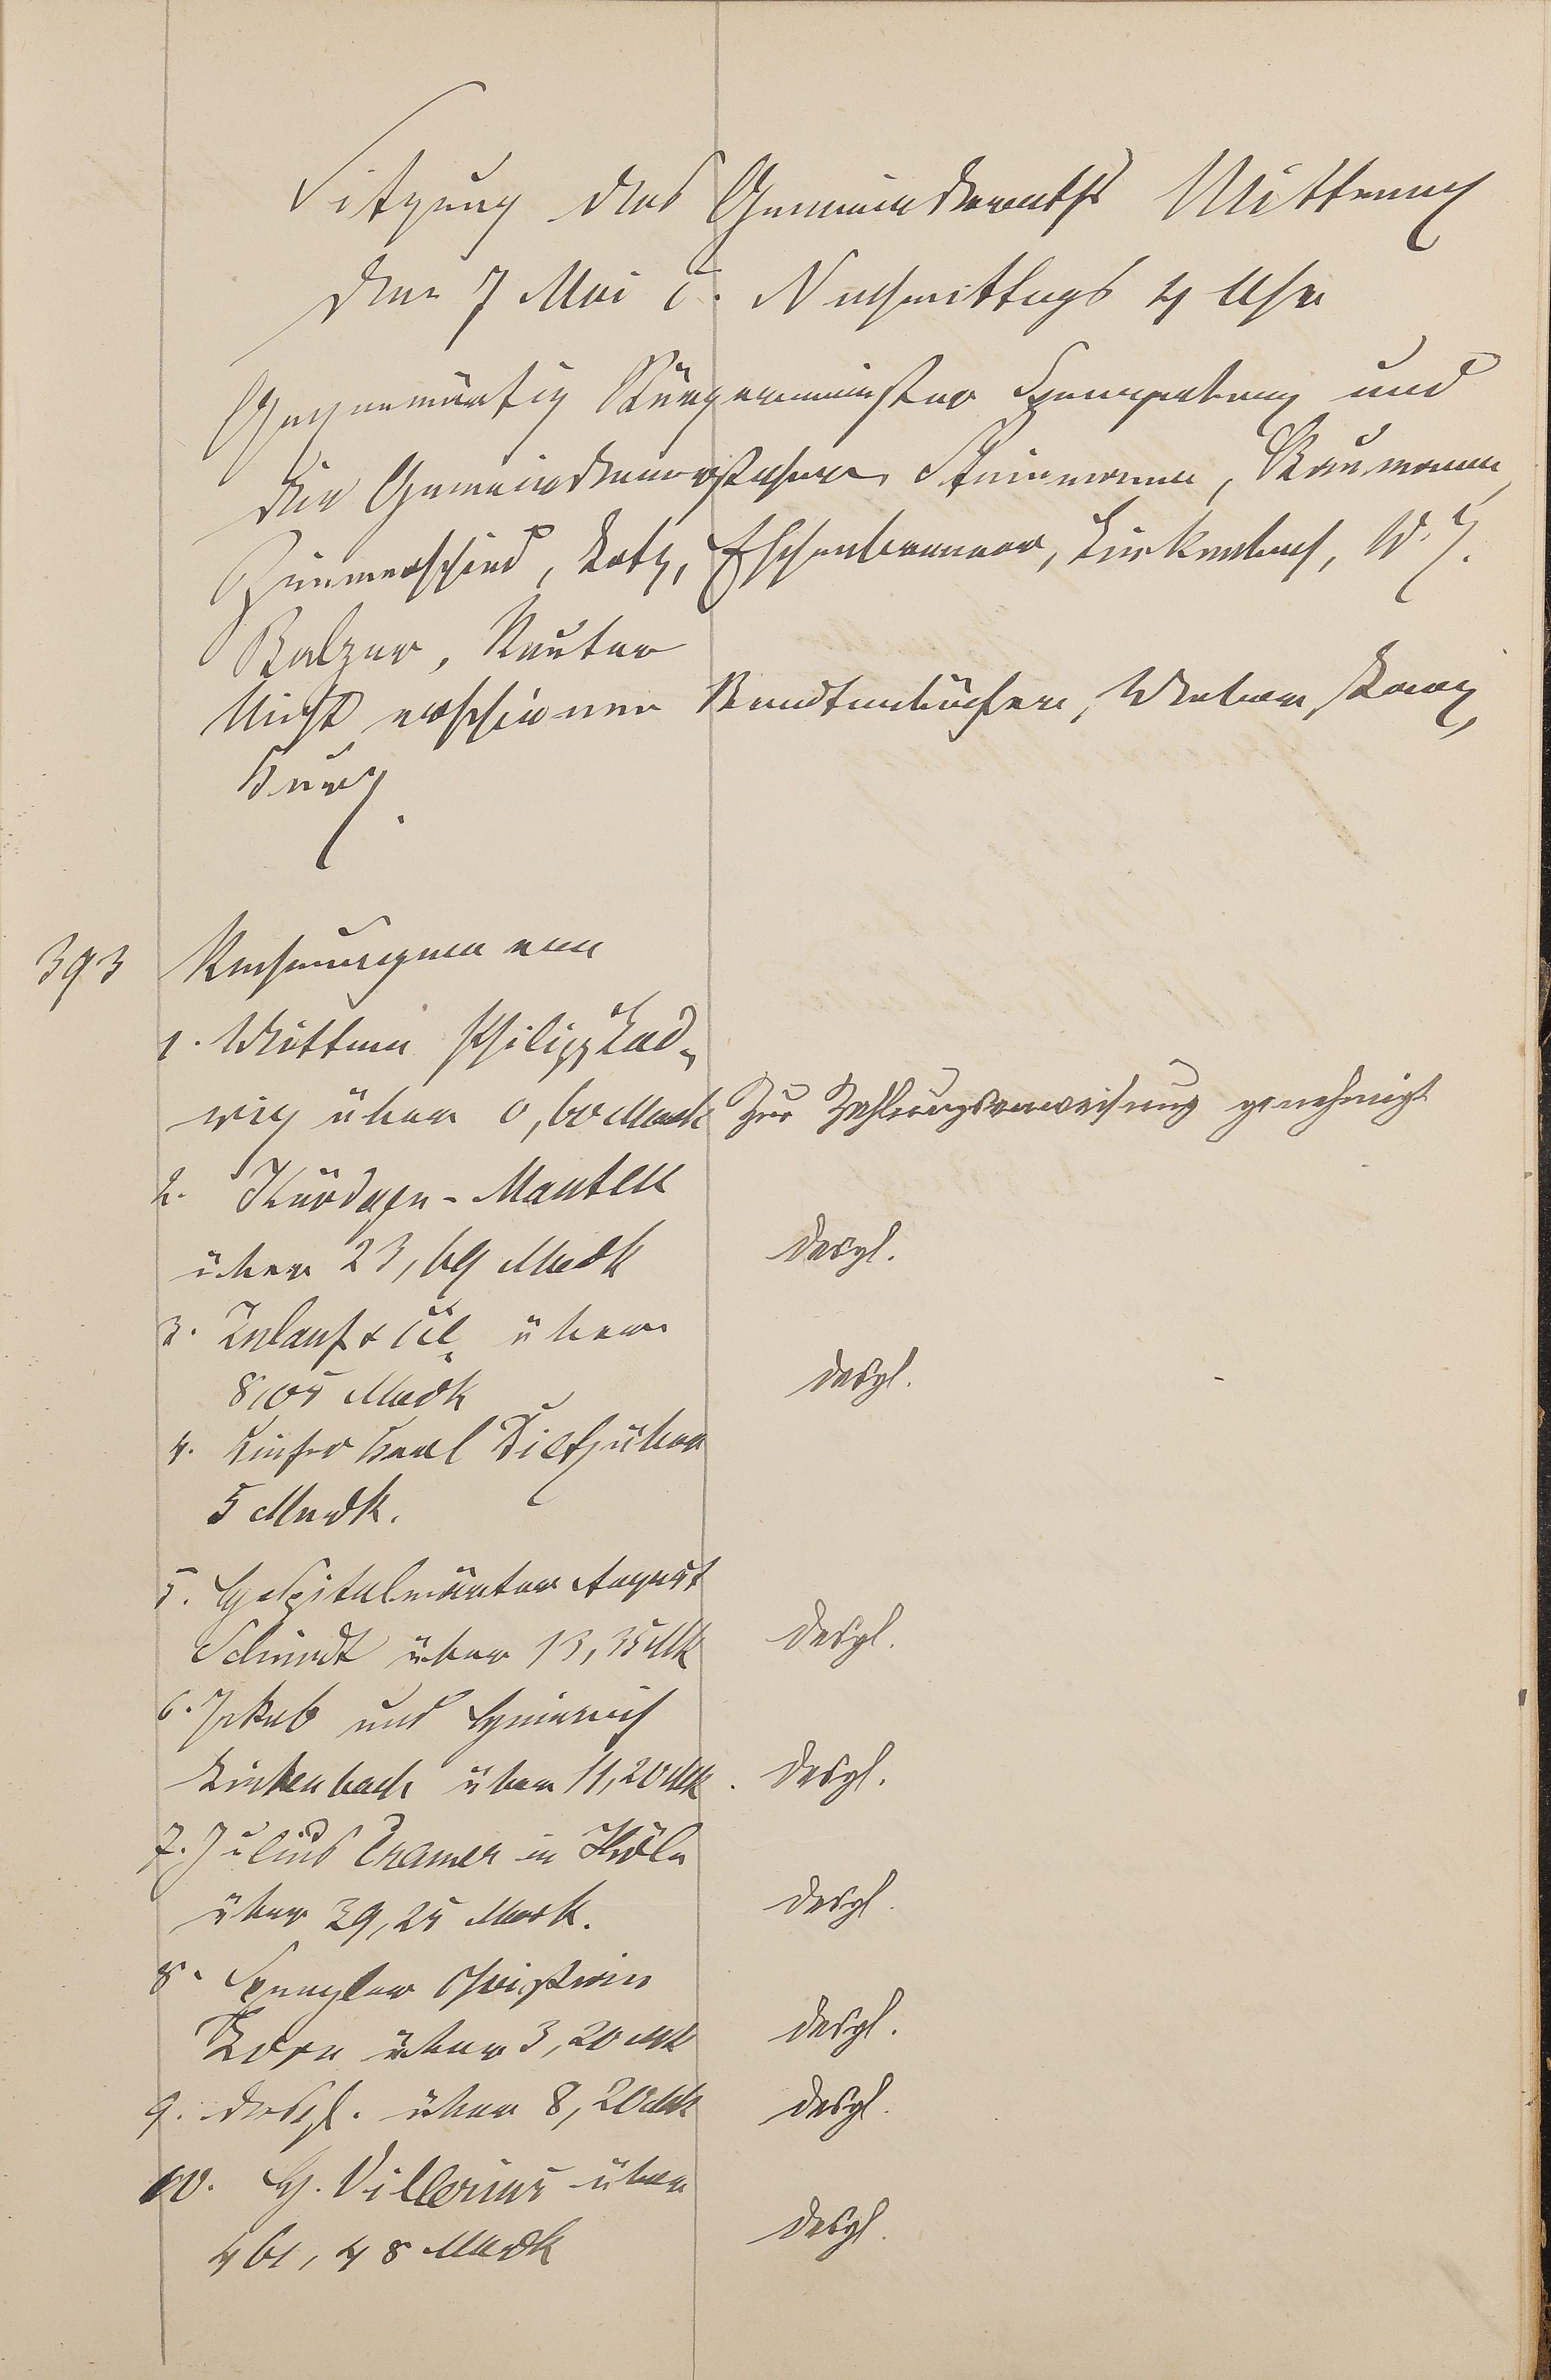 Sitzung des Gemeinderaths Mittwoch
den 7 Mai c. Nachmittags 4 Uhr
Gegenwärtig Bürgermeister und
die Gemeindevorsteher Steinmann, Baumann,
Zimmerschied, Lotz, Eschenbrenner, Linkenbach, W. J.
Balzer, Reuter
Nicht erschienen Weber,
Kurz.
393 Rechnungen von
1. Wittwe Philipp Lud-
wig über 0,60 Mark Zur Zahlungsanweisung genehmigt
2. Mantell
über 23,69 Mark desgl.
3. Zulauf & Cie. über
8,05 Mark desgl.
4. Küfer Karl Dietz über
5 Mark.
5. Hospitalwärter August
Schmidt über 13,35 Mk desgl.
6. Jakob und Heinrich
Linkenbach über 11,20 Mk. desgl.
7. Julius Cramer in Köln
über 39,25 Mark. desgl.
8. Spengler Christian
über 3,20 Mk desgl.
9. desgl. über 8,20 Mk desgl.
10. H. Villerius über
461,48 Mark desgl.